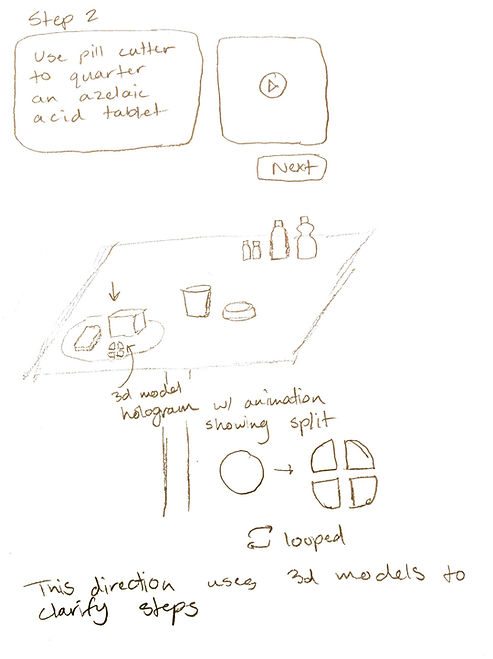 Step 2
Use pill cutter
to quarter
an azelaic
acid tablet
Next
3d model
hologram w/ animation
showing split
looped
This direction uses 3d models to
clarify steps